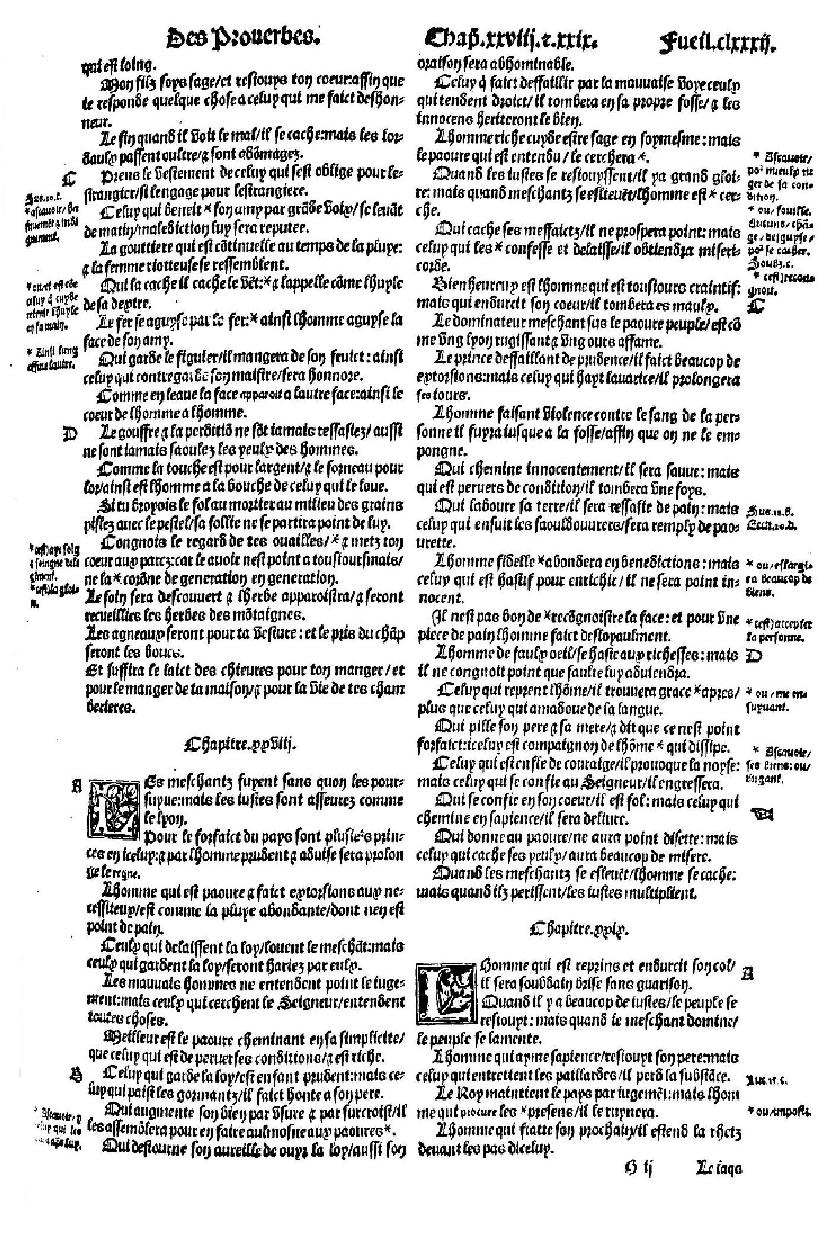 Des Prouerbes.
Chap.xxviij.&.xxix.
Fueil.clxxxij.
qui est loing.
Mon filz soys sage/et resiouys ton coeur:affin que
ie responde quelque chose a celuy qui me faict deshon-
neur.
Le fin quand il voit le mal/il se cache:mais les lor-
daulx passent oultre/& sont adõmagez.
C
Prens le vestement de celuy qui sest oblige pour le-
strangier/si lengage pour lestrangiere.
Celuy qui beneit * son amy par grãde voix/se leuãt
de matin/malediction luy sera reputee.
La gouttiere qui est cõtinuelle au temps de la pluye:
& la femme riotteuse se ressemblent.
Qui la cache il cache le vẽt:* & lappelle cõme lhuyle
de sa dextre.
Le fer se aguyse par le fer:* ainsi lhomme aguyse la
face de son amy.
Qui garde le figuier/il mangera de son fruict : ainsi
celuy qui contregarde son maistre/sera honnore.
Comme en leaue la face apparoit a lautre face:ainsi le
coeur de lhomme a lhomme.
D
Le gouffre & la perditiõ ne sõt iamais ressasiez/ aussi
ne sont iamais saoulez les yeulx des hommes.
Comme la touche est pour largent/& le forneau pour
lor/ainsi est lhomme a la bouche de celuy qui le loue.
Si tu broyois le fol au mortier au milieu des grains
pistez auec le pestel/sa follie ne se partira point de luy.
Congnois le regard de tes ouailles/* & metz ton
coeur aux parcz:car le auoir nest point a tousiours/mais/
ne la * corõne de generation en generation.
Le foin sera descouvert & lherbe apparoistra/& seront
recueillies les herbes des mõtaignes.
Les agneaux seront pour ta vesture : et le pris du chãp
seront les boucs.
Et suffira le laict des chieures pour ton manger / et
pour le manger de ta maison/& pour la vie de tes cham
berieres.
Chapitre.xxviij.
A
LEs meschantz fuyent sans quon les pour-
suyue:mais les iustes sont asseurez comme
le lyon.
Pour le forfaict du pays sont plusie's prin-
ces en icelluy:& par lhomme prudent & aduise sera prolon
ge le regne.
Lhomme qui est paoure & faict extorsions aux ne-
cessiteux/est comme la pluye abondante/dont nen est
point de pain.
Ceulx qui delaissent la loy/louent le meschãt:mais
ceulx qui gardent la loy/seront hariez par eulx.
Les mauuais hommes ne entendent point le iuge-
ment:mais ceulx qui cerchent le Seigneur/entendent
toutes choses.
Meilleur est le paoure cheminant en sa simplicite/
que celuy qui est de peruerses conditions/& est riche.
B
Celuy qui garde la loy/est enfant prudent:mais ce-
luy qui paist les gormantz/il faict honte a son pere.
Qui augmente son bien par vsure & par surcroist/il
les assemblera pour en faire aulmosne aux paoures*.
Qui destourne son aureille de ouyr la loy/aussi son
oraison sera abhominable.
Celuy q̃ faict deffaillir par la mauuaise voye ceulx
qui tendent droict/il tombera en sa propre fosse/& les
innocens heriteront le bien.
Lhomme riche cuyde estre sage en soymesme : mais
le paoure qui est entendu/le cerchera *.
Quand les iustes se resiouyssent/il ya grand gloi-
re: mais quand meschantz se eslieuẽt/lhomme est * cer-
che.
Qui cache ses meffaictz/il ne prospera point: mais
celuy qui les * confesse et delaisse/il obtiendra miseri-
corde.
Bienheureux est lhomme qui est tousiours craintif:
mais qui endurcit son coeur/il tombera es maulx.
Le dominateur meschant sus le paoure peuple/est cõ
me vng lyon rugissant & vng ours affame.
Le prince deffaillant de prudence/il faict beaucop de
extorsions:mais celuy qui hayt lauarice/il prolongera
ses iours.
Lhomme faisant violence contre le sang de la per-
sonne il fuyra iusque a la fosse/affin que on ne le em-
pongne.
Qui chemine innocentement/il sera sauue: mais
qui est peruers de condition/il tombera vne foys.
Qui laboure sa terre/il sera ressasie de pain: mais
celuy qui ensuit les saouldouurers/sera remply de pao-
urette.
Lhomme fidelle * abondera en benedictions: mais
celuy qui est hastif pour enrichir / il ne sera point in-
nocent.
Il nest pas bon de * recõgnoistre la face: et pour vne
piece de pain lhomme faict desloyaulment.
Lhomme de faulx oeil/se haste aux richesses: mais
il ne congnoit point que faulte luy aduiendra.
Celuy qui reprent lhõme/il trouuera grace * apres/
plus que celuy qui amadoue de sa langue.
Qui pille son pere & sa mere/& dit que ce nest point
forfaict:iceluy est compaignon de lhõme * qui dissipe.
Celuy qui est enfle de couraige/il prouoque la noyse:
mais celuy qui se confie au Seigneur/il engressera.
Qui se confie en son coeur/il est fol: mais celuy qui
chemine en sapience/il sera deliure.
Qui donne au paoure/ne aura point disette: mais
celuy qui cache ses yeulx/aura beaucop de misere.
Quand les meschantz se eslieuẽt/lhomme se cache:
mais quand ilz perissent/les iustes multiplient.
Chapitre.xxix.
LHomme qui est reprins et endurcit son col/
il sera soubdain brise sans guarison.
Quand il y a beaucop de iustes/le peuple se
resiouyt : mais quand le meschant domine/
le peuple se lamente.
Lhomme qui ayme sapience/resiouyt son pere:mais
celuy qui entretient les paillardes/il perd la substãce.
Le Roy maintient le pays par iugemẽt:mais lhom
me qui procure les * presens/il le ruynera.
Lhomme qui flatte son prochain/il estend la rhetz
deuant les pas dicelluy.
* Ascauoir/
* ou/fouille.
Sus.12.b.
* ou/eslargi-
ra beaucop de
biens.
* cest/accepter
la personne.
D
* ou/me en-
suyuant.
* Ascauoir/
A
* ou/impostz.
G ij
Le iaqa